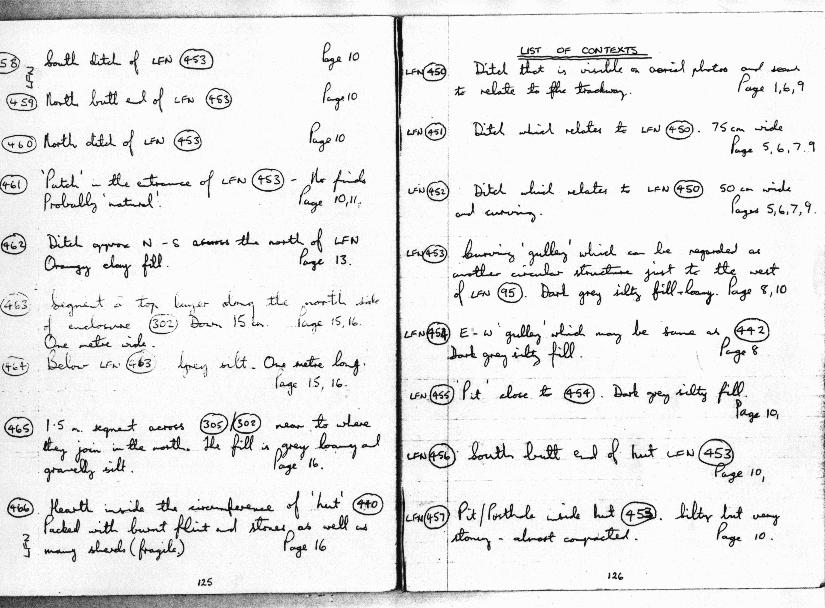 58 South ditch of LFN 453 Page 10
LFN
459 North butt end of LFN 453 Page 10
460 North ditch of LFN 453 Page 10
461 'Patch' in the entrance of LFN 453 - No finds
Probably 'natural'. Page 10,11.
462 Ditch approx N - S across the north of LFN
Orangy clay fill. Page 13.
463 Segment in top layer along the north side
of enclosure 302 Down 15 cm. Page 15,16.
One metre wide.
464 Below LFN 463 grey silt. One metre long.
Page 15, 16.
465 1.5 m. segment across 305/302 near to where
they join in the north. The fill is grey loamy and
gravelly silt. Page 16.
466 Hearth inside the circumference of 'hut' 440
Packed with burnt flint and stones, as well as
LFN many sherds (fragile) Page 16
125
LIST OF CONTEXTS
LFN 450 Ditch that is visible on aerial photos and seems
to relate to the trackway. Page 1,6,9
LFN 451 Ditch which relates to LFN 450. 75 cm wide
Page 5,6,7.9
LFN 452 Ditch which relates to LFN 450 50 cm wide
and curving. Pages 5,6,7,9.
LFN 453 Curving 'gulley' which can be regarded as
another circular structure just to the west
of LFN 95. Dark grey silty fill-loamy. Page 8,10
LFN 454 E - W 'gulley' which may be same as 442
Dark grey silty fill. Page 8
LFN 455 'Pit' close to 454. Dark grey silty fill.
Page 10,
LFN 456 South butt end of hut LFN 453
Page 10,
LFN 457 Pit/Posthole inside hut 453. Silty but very
stoney - almost compacted. Page 10.
126